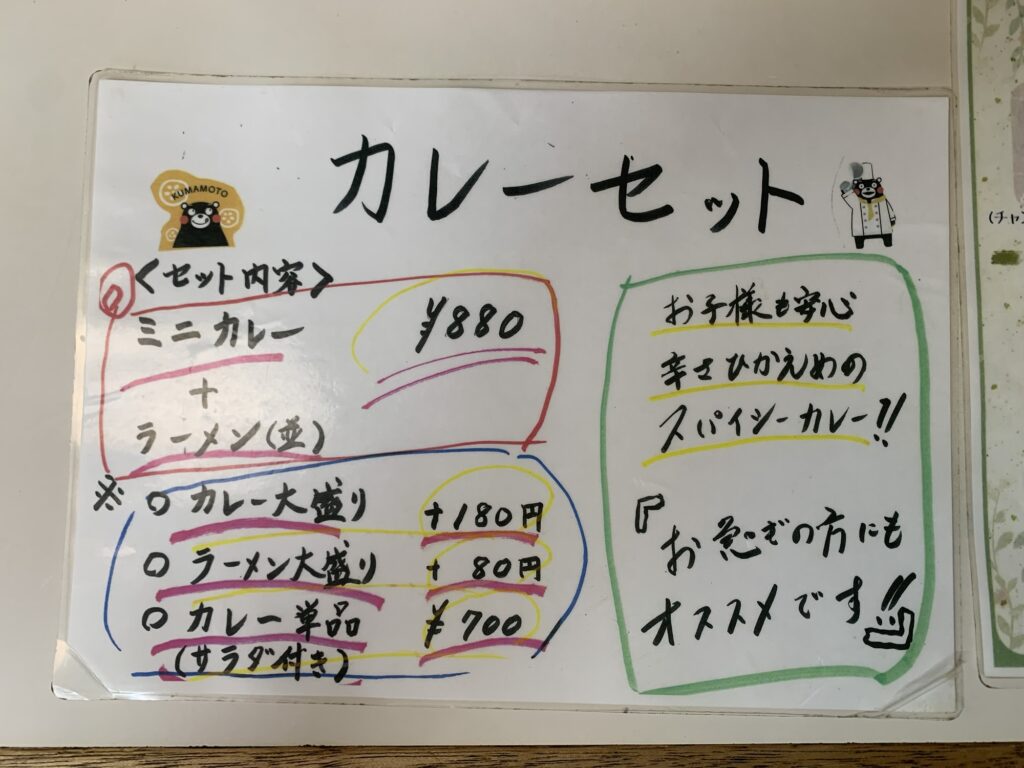 カレーセット
KUMAMOTO
<セット内容>
ミニカレー ¥880
+
ラーメン(並)
※ ○ カレー大盛り +180円
○ ラーメン大盛り + 80円
○ カレー単品 ¥700
(サラダ付き)
お子様も安心
辛さひかえめの
スパイシーカレー!!
『お急ぎの方にも
オススメです!!』
(チャ